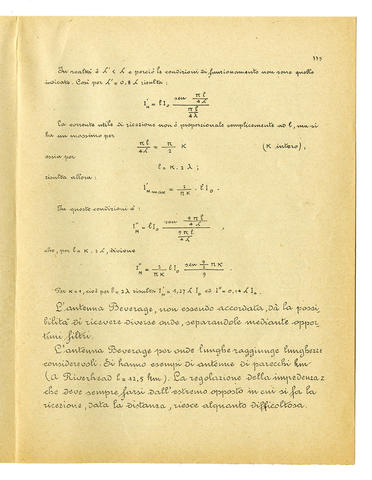 In realtà è λ' < λ e perciò le condizioni di funzionamento non sono quelle
indicate. Così per λ' = 0,8 λ risulta:
I'_M = l I_0 sen (π l / 4 λ) / (π l / 4 λ)
La corrente utile di ricezione non è proporzionale semplicemente ad l, ma si
ha un massimo per
π l / 4 λ = π / 2 K (K intero),
ossia per
l = K . 2 λ ;
risulta allora:
I'_M max = 2 / π K . l I_0 .
In queste condizioni è:
I''_M = l I_0 sen (9 π l / 4 λ) / (9 π l / 4 λ) ,
che, per l = K . 2 λ, diviene
I''_M = 2 / π K l I_0 sen (9 / 2 π K) / 9 .
Per K = 1, cioè per l = 2 λ risulta I'_M = 1,27 λ I_0 ed I'' = 0,14 λ I_0 .
L'antenna Beverage, non essendo accordata, dà la possi
bilità di ricevere diverse onde, separandole mediante oppor
tuni filtri.
L'antenna Beverage per onde lunghe raggiunge lunghezze
considerevoli. Si hanno esempi di antenne di parecchi km
(a Riverhead l = 12,5 km). La regolazione della impedenza z
che deve sempre farsi dall'estremo opposto in cui si fa la
ricezione, data la distanza, riesce alquanto difficoltosa.